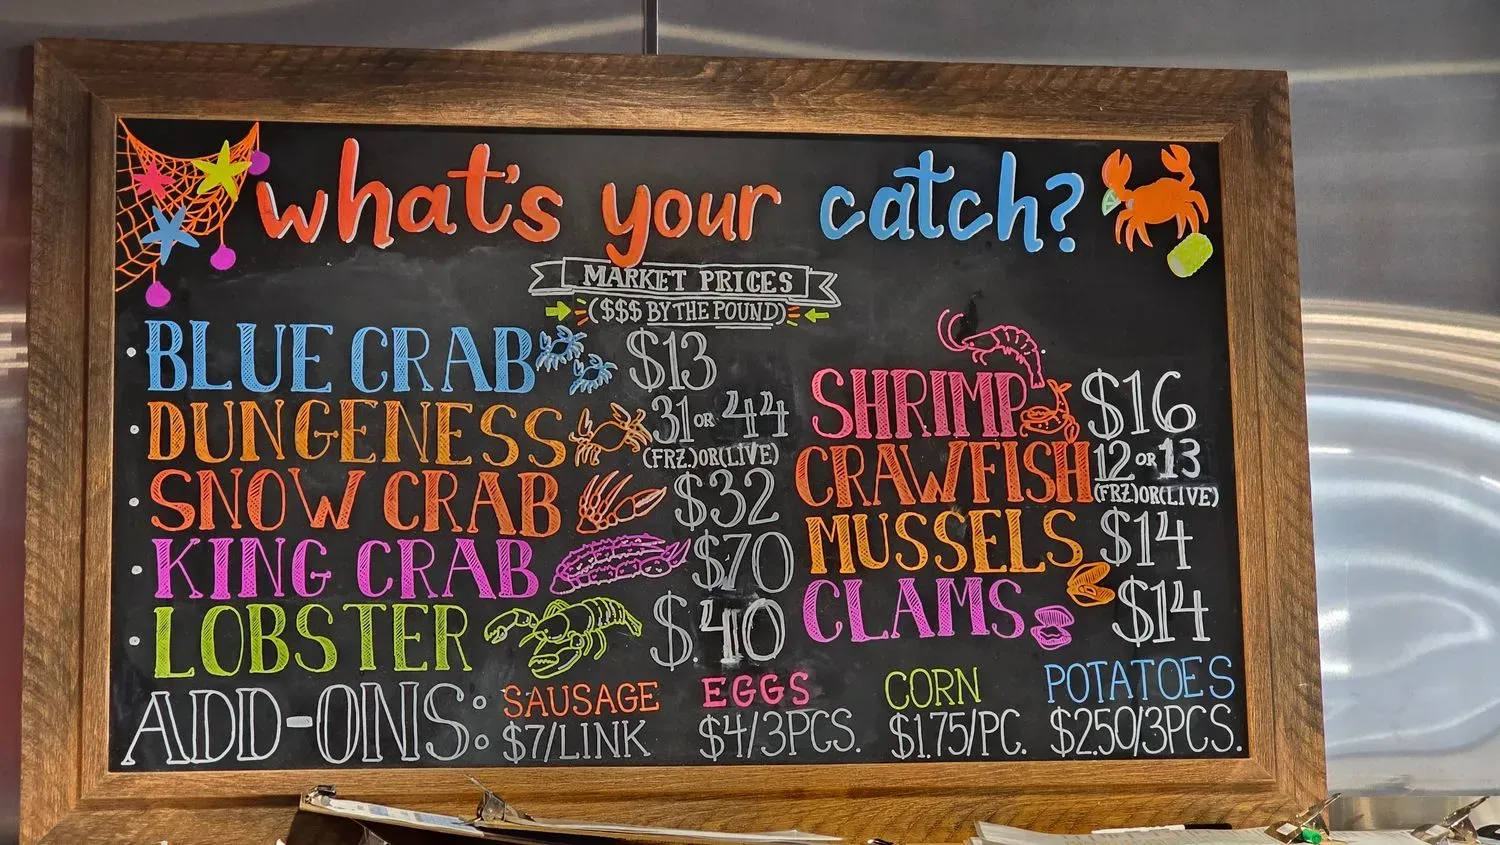 what's your catch?
MARKET PRICES
($$$ BY THE POUND)
BLUE CRAB $13
DUNGENESS 31 OR 44
(FRZ.) OR (LIVE)
SNOW CRAB $32
KING CRAB $70
LOBSTER $.40
SHRIMP $16
CRAWFISH 12 OR 13
(FRZ.) OR (LIVE)
MUSSELS $14
CLAMS $14
ADD-ONS:
SAUSAGE
$7/LINK
EGGS
$4/3PCS.
CORN
$1.75/PC.
POTATOES
$2.50/3PCS.